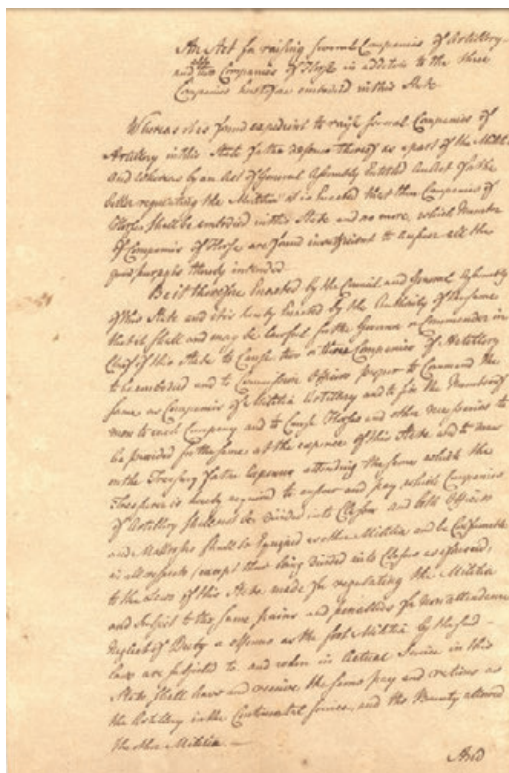 An Act for raising several Companies of Artillery
and two Companies of Horse in addition to the three
Companies heretofore embodied within this State
Whereas it is found expedient to raise several Companies of
Artillery in this State for the defence thereof as a part of the Militia
And whereas by an Act of General Assembly Entitled An Act for the
better regulating the Militia it is Enacted that three Companies of
Horse shall be embodied in this State and no more, which Number
of Companies of Horse are found insufficient to answer all the
good purposes thereby intended
Be it therefore Enacted by the Council and General Assembly
of this State and it is hereby Enacted by the Authority of the same
that it shall and may be lawful for the Governor or Commander in
Chief of this State to Cause two or three Companies of Artillery
to be embodied and to Commission Officers proper to Command the
same as Companies of Militia Artillery and to fix the Number of
men to each Company and to Cause Horses and other necessaries to
be provided for the same at the expence of this State and to draw
on the Treasury for the expences attending the same which the
Treasurer is hereby required to answer and pay, which Companies
of Artillery shall not be divided into Classes and both Officers
and Matrosses shall be Equipped as other Militia and be
in all respects (except their being divided into Classes as aforesaid)
to the Laws of this State made for regulating the Militia
and subject to the same pains and penalties for non attendance
neglect of Duty or offences as the foot Militia by the said
Laws are subjected to and when in Actual Service in this
State shall draw and receive the same pay and rations as
the Artillery in the Continental Service, and the Bounty allowed
the other Militia.
And